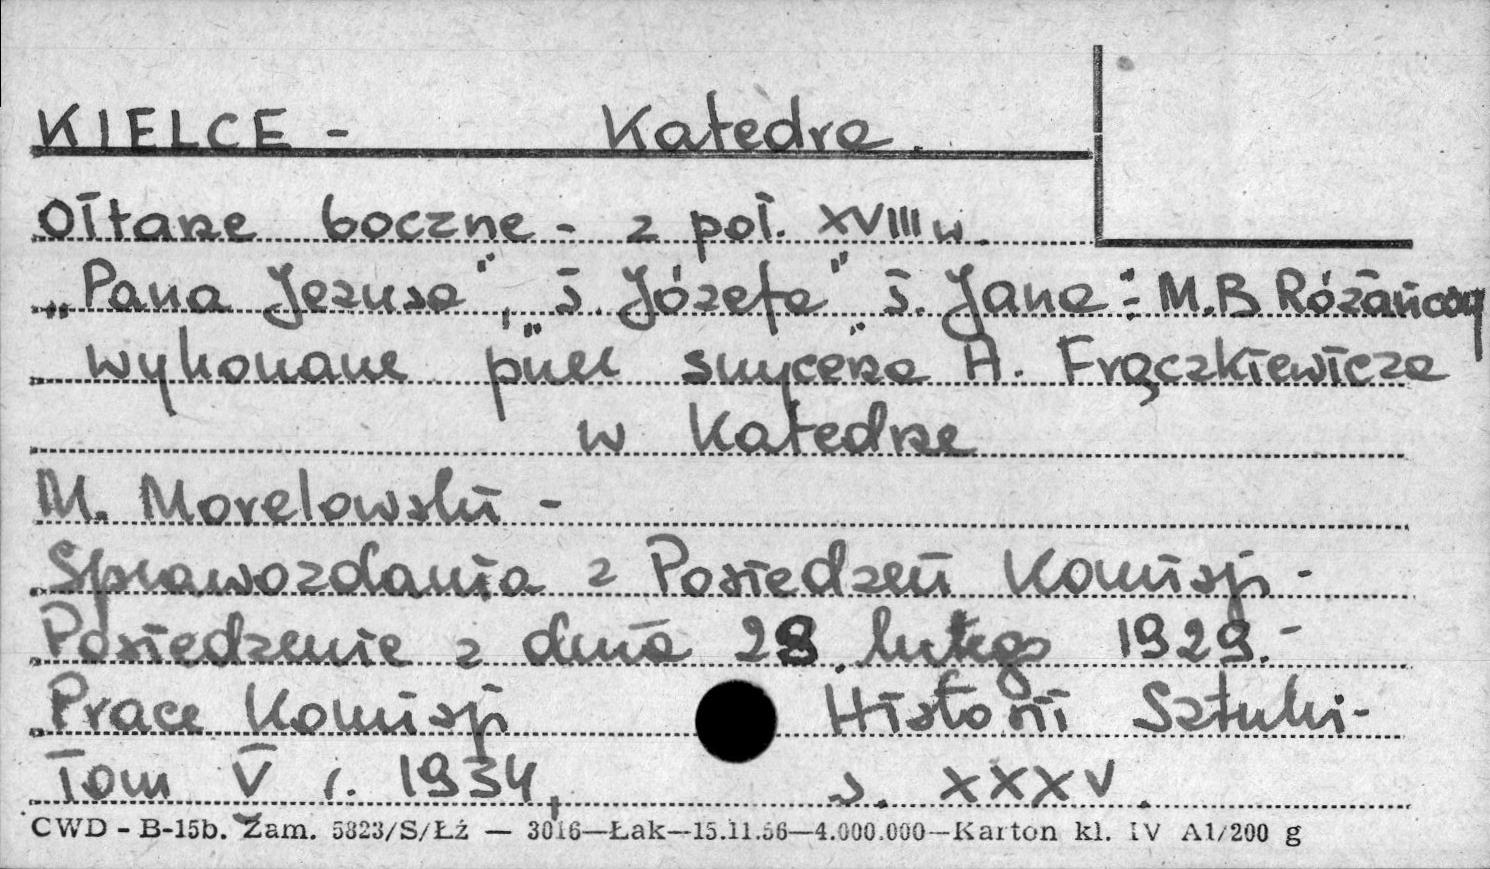 KIELCE - Katedra.
Ołtarze boczne - z poł. XVIII w.
„Pana Jezusa", ś. Józefa" ś. Jana" i M.B Różańcowy
wykonane przez snycerza A. Frączkiewicza
w Katedrze
M. Morelowski -
Sprawozdania z Posiedzeń Komisji -
Posiedzenie z dnia 28 lutego 1929. -
Prace Komisji Historii Sztuki -
Tom V r. 1934, s. XXXV.
CWD - B-15b. Zam. 5823/S/Łż — 3016—Łak—15.11.56—4.000.000—Karton kl. IV A1/200 g